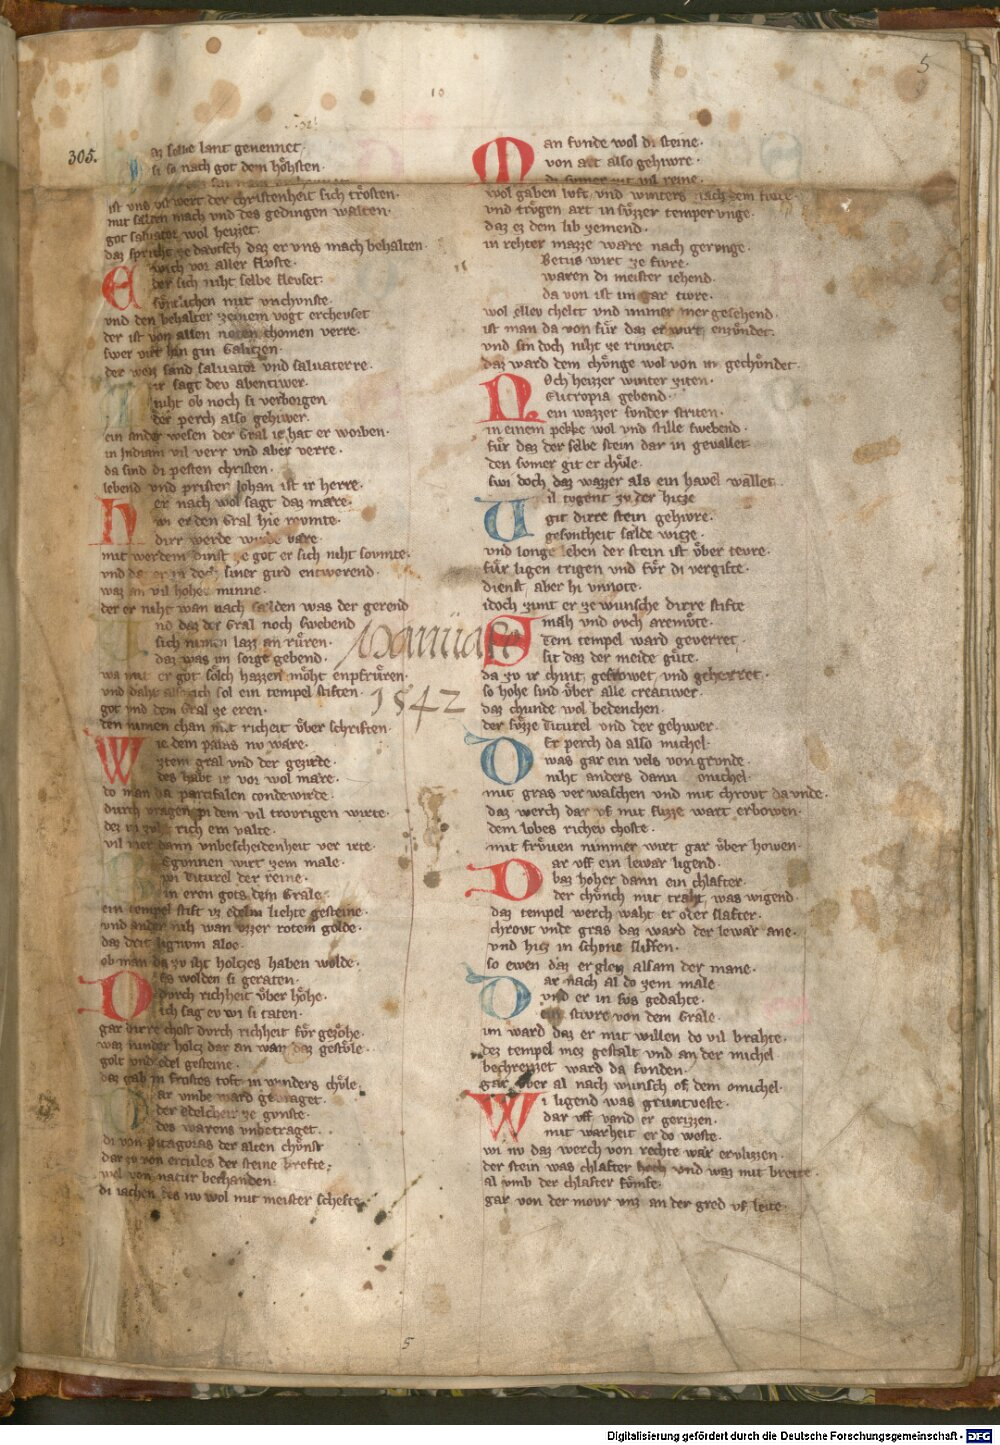 5
10
305.
az selbe lant genennet.
si so nach got dem hôhsten.
ist vns vil wert der christenheit sich trôsten.
mit sælden mach vnd des gedingen walten.
got saluator wol heizzet.
daz spricht ze dautsch daz er vns mach behalten.
Ewich vor aller flvste.
der sich niht selbe flevset.
svntlichen mit vnchvnste.
vnd den behalter zeinem vogt erchevset
der ist von allen noten chomen verre.
swer virt hin gin Galitzen.
der weiz sand saluator vnd saluaterre.
ir sagt dev abentiwer.
niht ob noch si verborgen
der perch also gehiwer.
ein ander wesen der Gral ie hat er worben.
in Indiam vil verr vnd aber verre.
da sind di pesten christen.
lebend vnd prister Johan ist ir herre.
Her nach wol sagt daz mære.
wi er den Gral hie rovmte.
dirr werde wirde bære.
mit werdem dinst ze got er sich niht sovmte.
vnd da er in doch siner gird entwerend.
waz an vil hoher minne.
der er niht wan nach sælden was der gerend
no daz der Gral noch swebend
sich nimen lazz an rüren.
daz was im sorge gebend.
wa mit er got sôlch hazzen môht enpfrüren.
vnd dahte also ich sol ein tempel stiften.
got vnd dem Gral ze eren.
den nimen chan mit richeit vber schriften.
Wie dem palas nv wære.
ztem gral vnd der gezirde.
des habt ir vor wol mære.
do man da parcifalen condewirde.
durch vragen pi dem vil trovrigen wirte.
der in zuht rich ern valte.
vil mer dann vnbescheidenheit ver irte.
Begvnnen wirt zem male.
wi Titurel der reine.
in eren gots dem Grale
ein tempel stift vz edelm lichte gesteine.
vnd ander niht wan vzzer rotem golde.
daz drit lignum aloe.
ob man da zv iht holtzes haben wolde.
Des wolden si geraten.
durch richheit vber hôhe.
ich sag ev wi si taten.
gar dirre chost durch richheit fvr gezôhe.
waz svnder holtz dar an war daz gestvle.
golt vnd edel gesteine.
daz gab in frostes toft in winders chvle.
ar vmbe ward gevraget.
der edelcheit ze gvnste.
des warens vnbetraget.
di von pitagoras der alten chvnst
dar zv von ercules der steine krefte.
wol von natur bechanden.
di iachen des nv wol mit meister schefte.
Man fvnde wol di steine.
von art also gehiwre.
di svmer zit vil reine.
wol gaben lvft. vnd winters nach dem tivre
vnd trvgen art in svzzer temper vnge.
daz ez dem lib zemend.
in rehter mazze wære nach gervnge.
Betus wirt ze fivre.
waren di meister iehend.
da von ist im gar tivre.
wol ellev chelt vnd nimer mer gesehend.
ist man da von fvr daz er wirt enzvndet.
vnd sin doch niht ze rinnet.
daz ward dem chvnge wol von in gechvndet.
Noch heizzer winter ziten.
Eutropia gebend.
ein wazzer svnder striten.
in einem pekke wol vnd stille swebend.
fvr daz der selbe stein dar in gevallet.
den svmer git er chvle.
swi doch daz wazzer als ein havel wallet.
Vil tvgent zv der hicze
git dirre stein gehivre.
gesvntheit sælde witze.
vnd longe leben der stein ist vber tevre.
fvr ligen trigen vnd fvr di vergifte.
dienst aber hi vnnote.
idoch zvnt er ze wunsche dirre stifte
Smah vnd ovch aremvte.
Dem tempel ward geverret.
sit daz der meide gvte.
da zv ir chint gefrowet vnd geherret.
so hohe sind vber alle creatiwer.
daz chunde wol bedenchen.
der svzze Titurel vnd der gehiwer.
Der perch da also michel.
was gar ein vels von grvnde.
niht anders dann onichel.
mit gras ver waschen vnd mit chrovt da vnde.
daz werch dar vf mit flizze wart erbowen.
dem lobes richen choste.
mit frevden nimmer wirt gar vber howen.
Dar vff ein lewar ligend.
baz hoher dann ein chlafter.
der chvnch mit traht was wigend.
daz tempel werch waht er oder slafter.
chrovt vnde gras daz ward der lewar ane.
vnd hiez in schone sliffen.
so ewen daz er gleiz alsam der mane.
Dar nach al do zem male
vnd er in svs gedahte.
ein stivre von dem Grale.
im ward daz er mit willen do vil brahte.
dez tempel mez gestalt vnd an der michel
bechreizzet ward da fvnden.
gar vber al nach wunsch of dem onichel.
Wi ligend was grvntveste.
dar vff vand er gerizzen.
mit warheit er do weste.
wi nv daz werch von rechte wær ervlizzen.
der stein was chlafter hoch vnd waz mit breite.
al vmb der chlafter fvmfe.
gar von der movr vnz an der gred vf leite.
1542
5
Digitalisierung gefördert durch die Deutsche Forschungsgemeinschaft - DFG